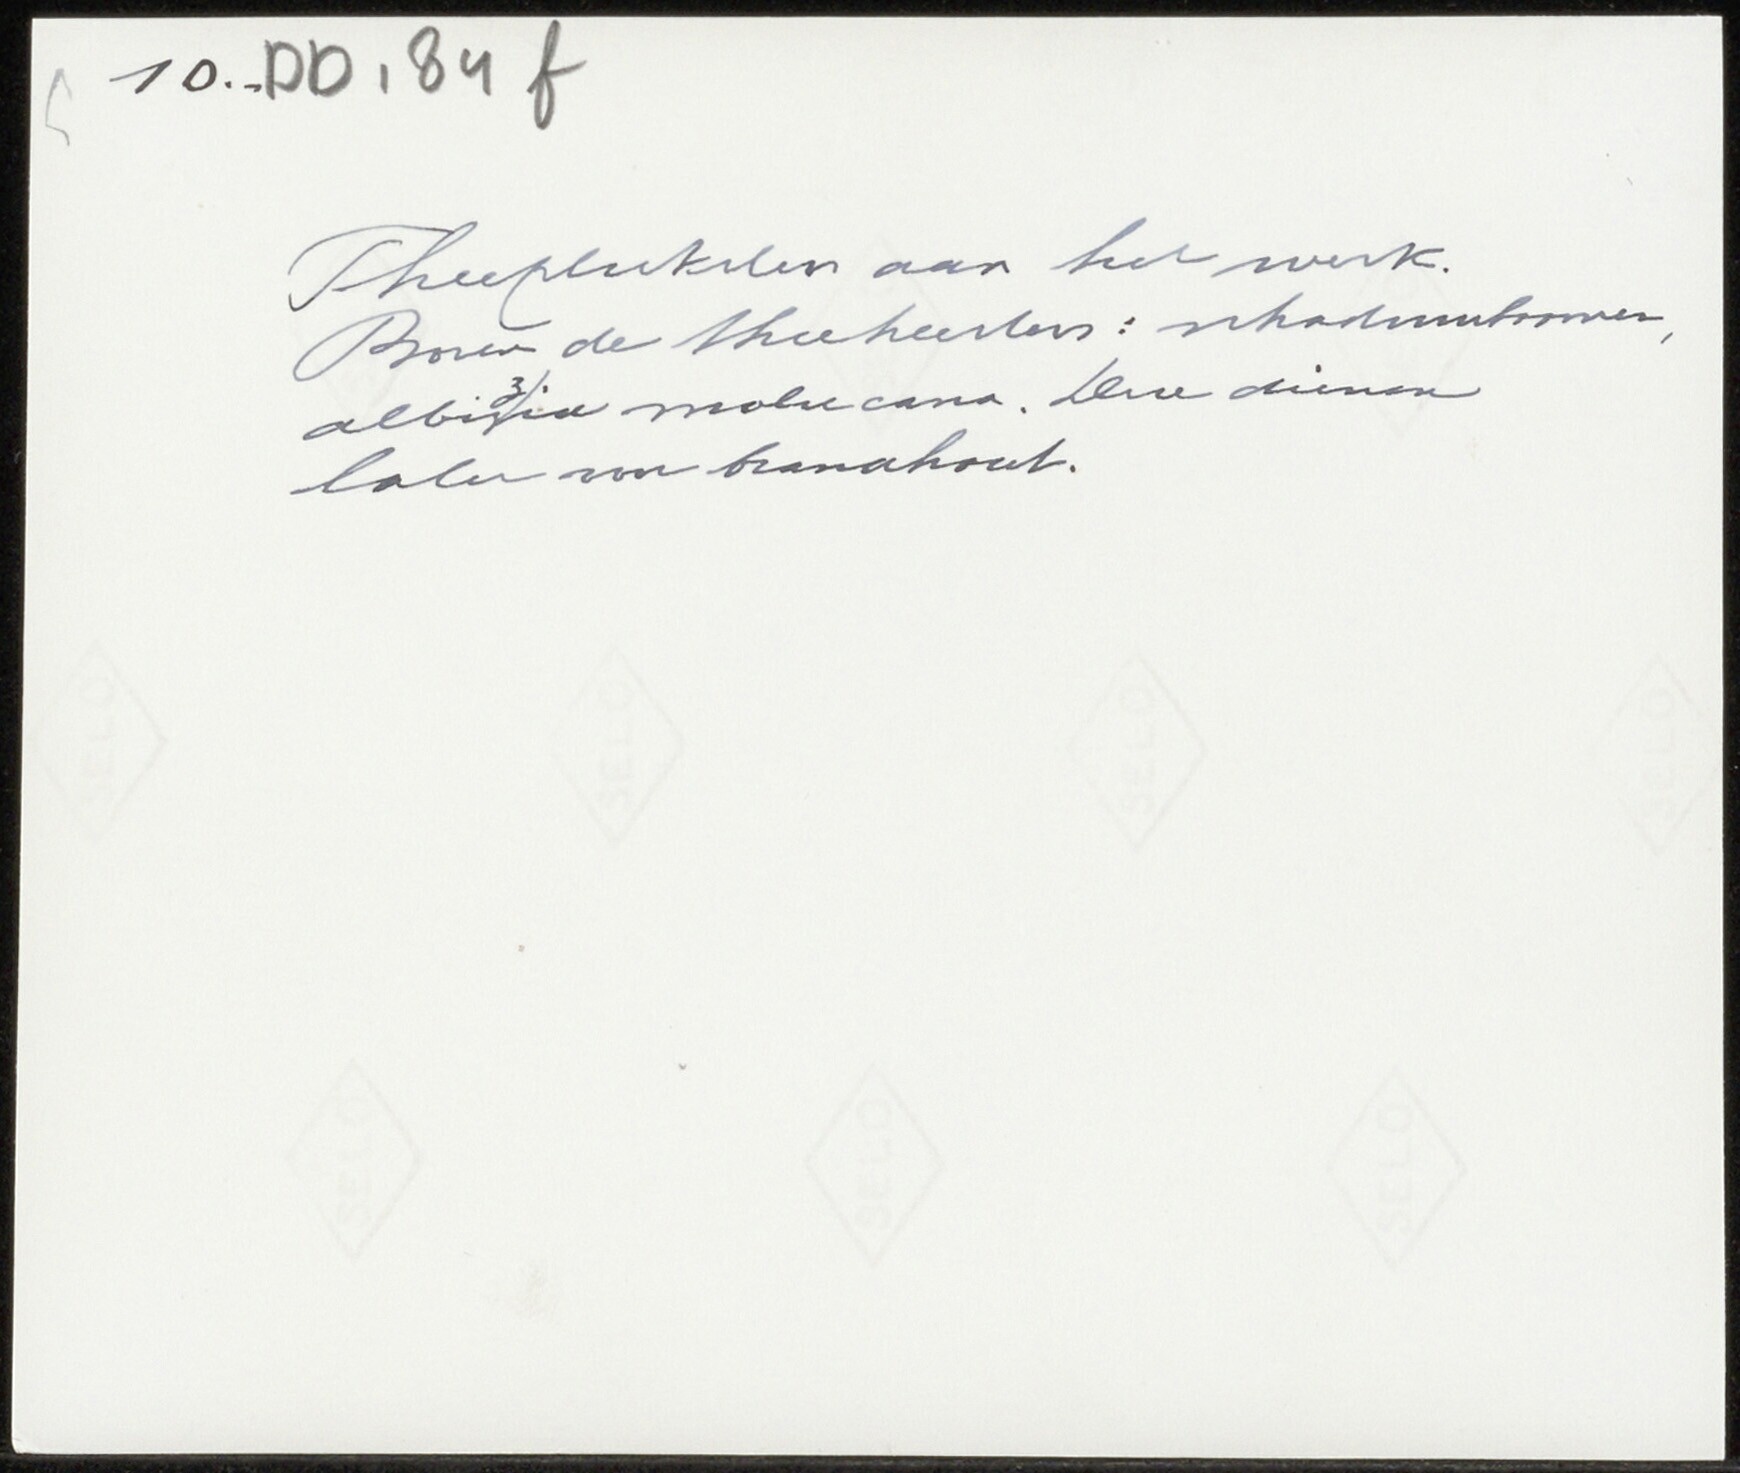 10.-DD,84 f
Theepluksters aan het werk.
Boven de theeheesters: schaduwboomen,
albizzia moluccana. Deze dienen
later voor brandhout.
SELO SELO SELO SELO
SELO SELO SELO